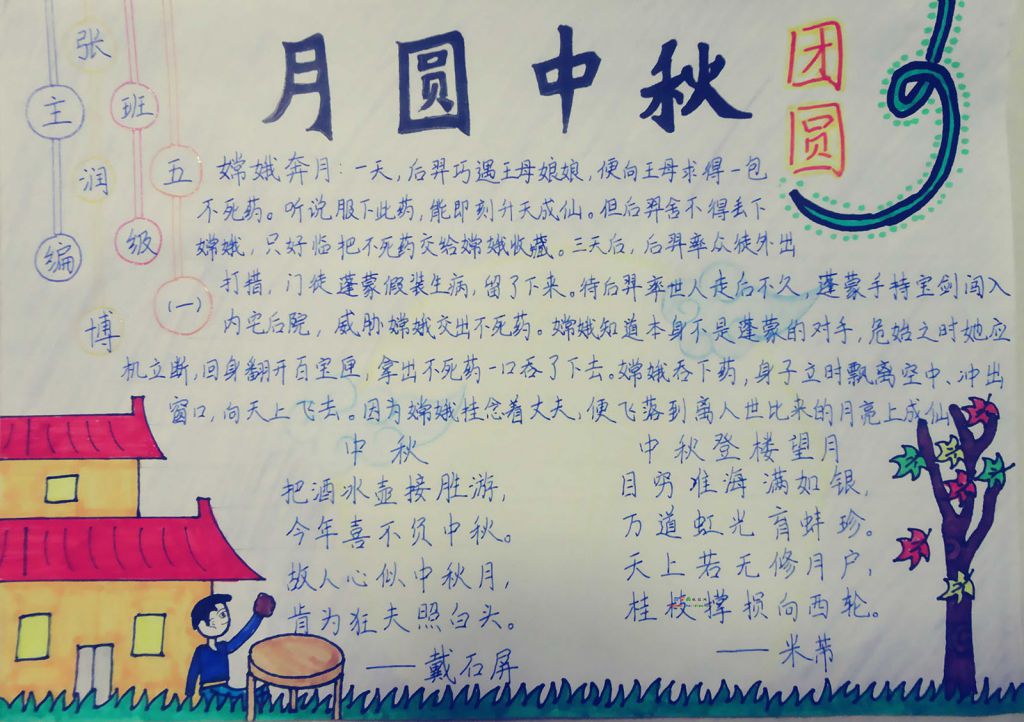 月圆中秋
团圆
主编
张润博
班级
五(一)
嫦娥奔月:一天,后羿巧遇王母娘娘,便向王母求得一包
不死药。听说服下此药,能即刻升天成仙。但后羿舍不得丢下
嫦娥,只好临把不死药交给嫦娥收藏。三天后,后羿率众徒外出
打措,门徒蓬蒙假装生病,留了下来。待后羿率世人走后不久,蓬蒙手持宝剑闯入
内宅后院,威胁嫦娥交出不死药。嫦娥知道本身不是蓬蒙的对手,危始之时她应
机立断,回身翻开百宝匣,拿出不死药一口吞了下去。嫦娥吞下药,身子立时飘离空中、冲出
窗口,向天上飞去。因为嫦娥牲念着丈夫,便飞落到离人世比来的月亮上成仙
中秋
把酒冰壶接胜游,
今年喜不负中秋。
故人心似中秋月,
肯为狂夫照白头。
——戴石屏
中秋登楼望月
目穷准海满如银,
万道虹光育蚌珍。
天上若无修月户,
桂枝撑损向西轮。
——米芾